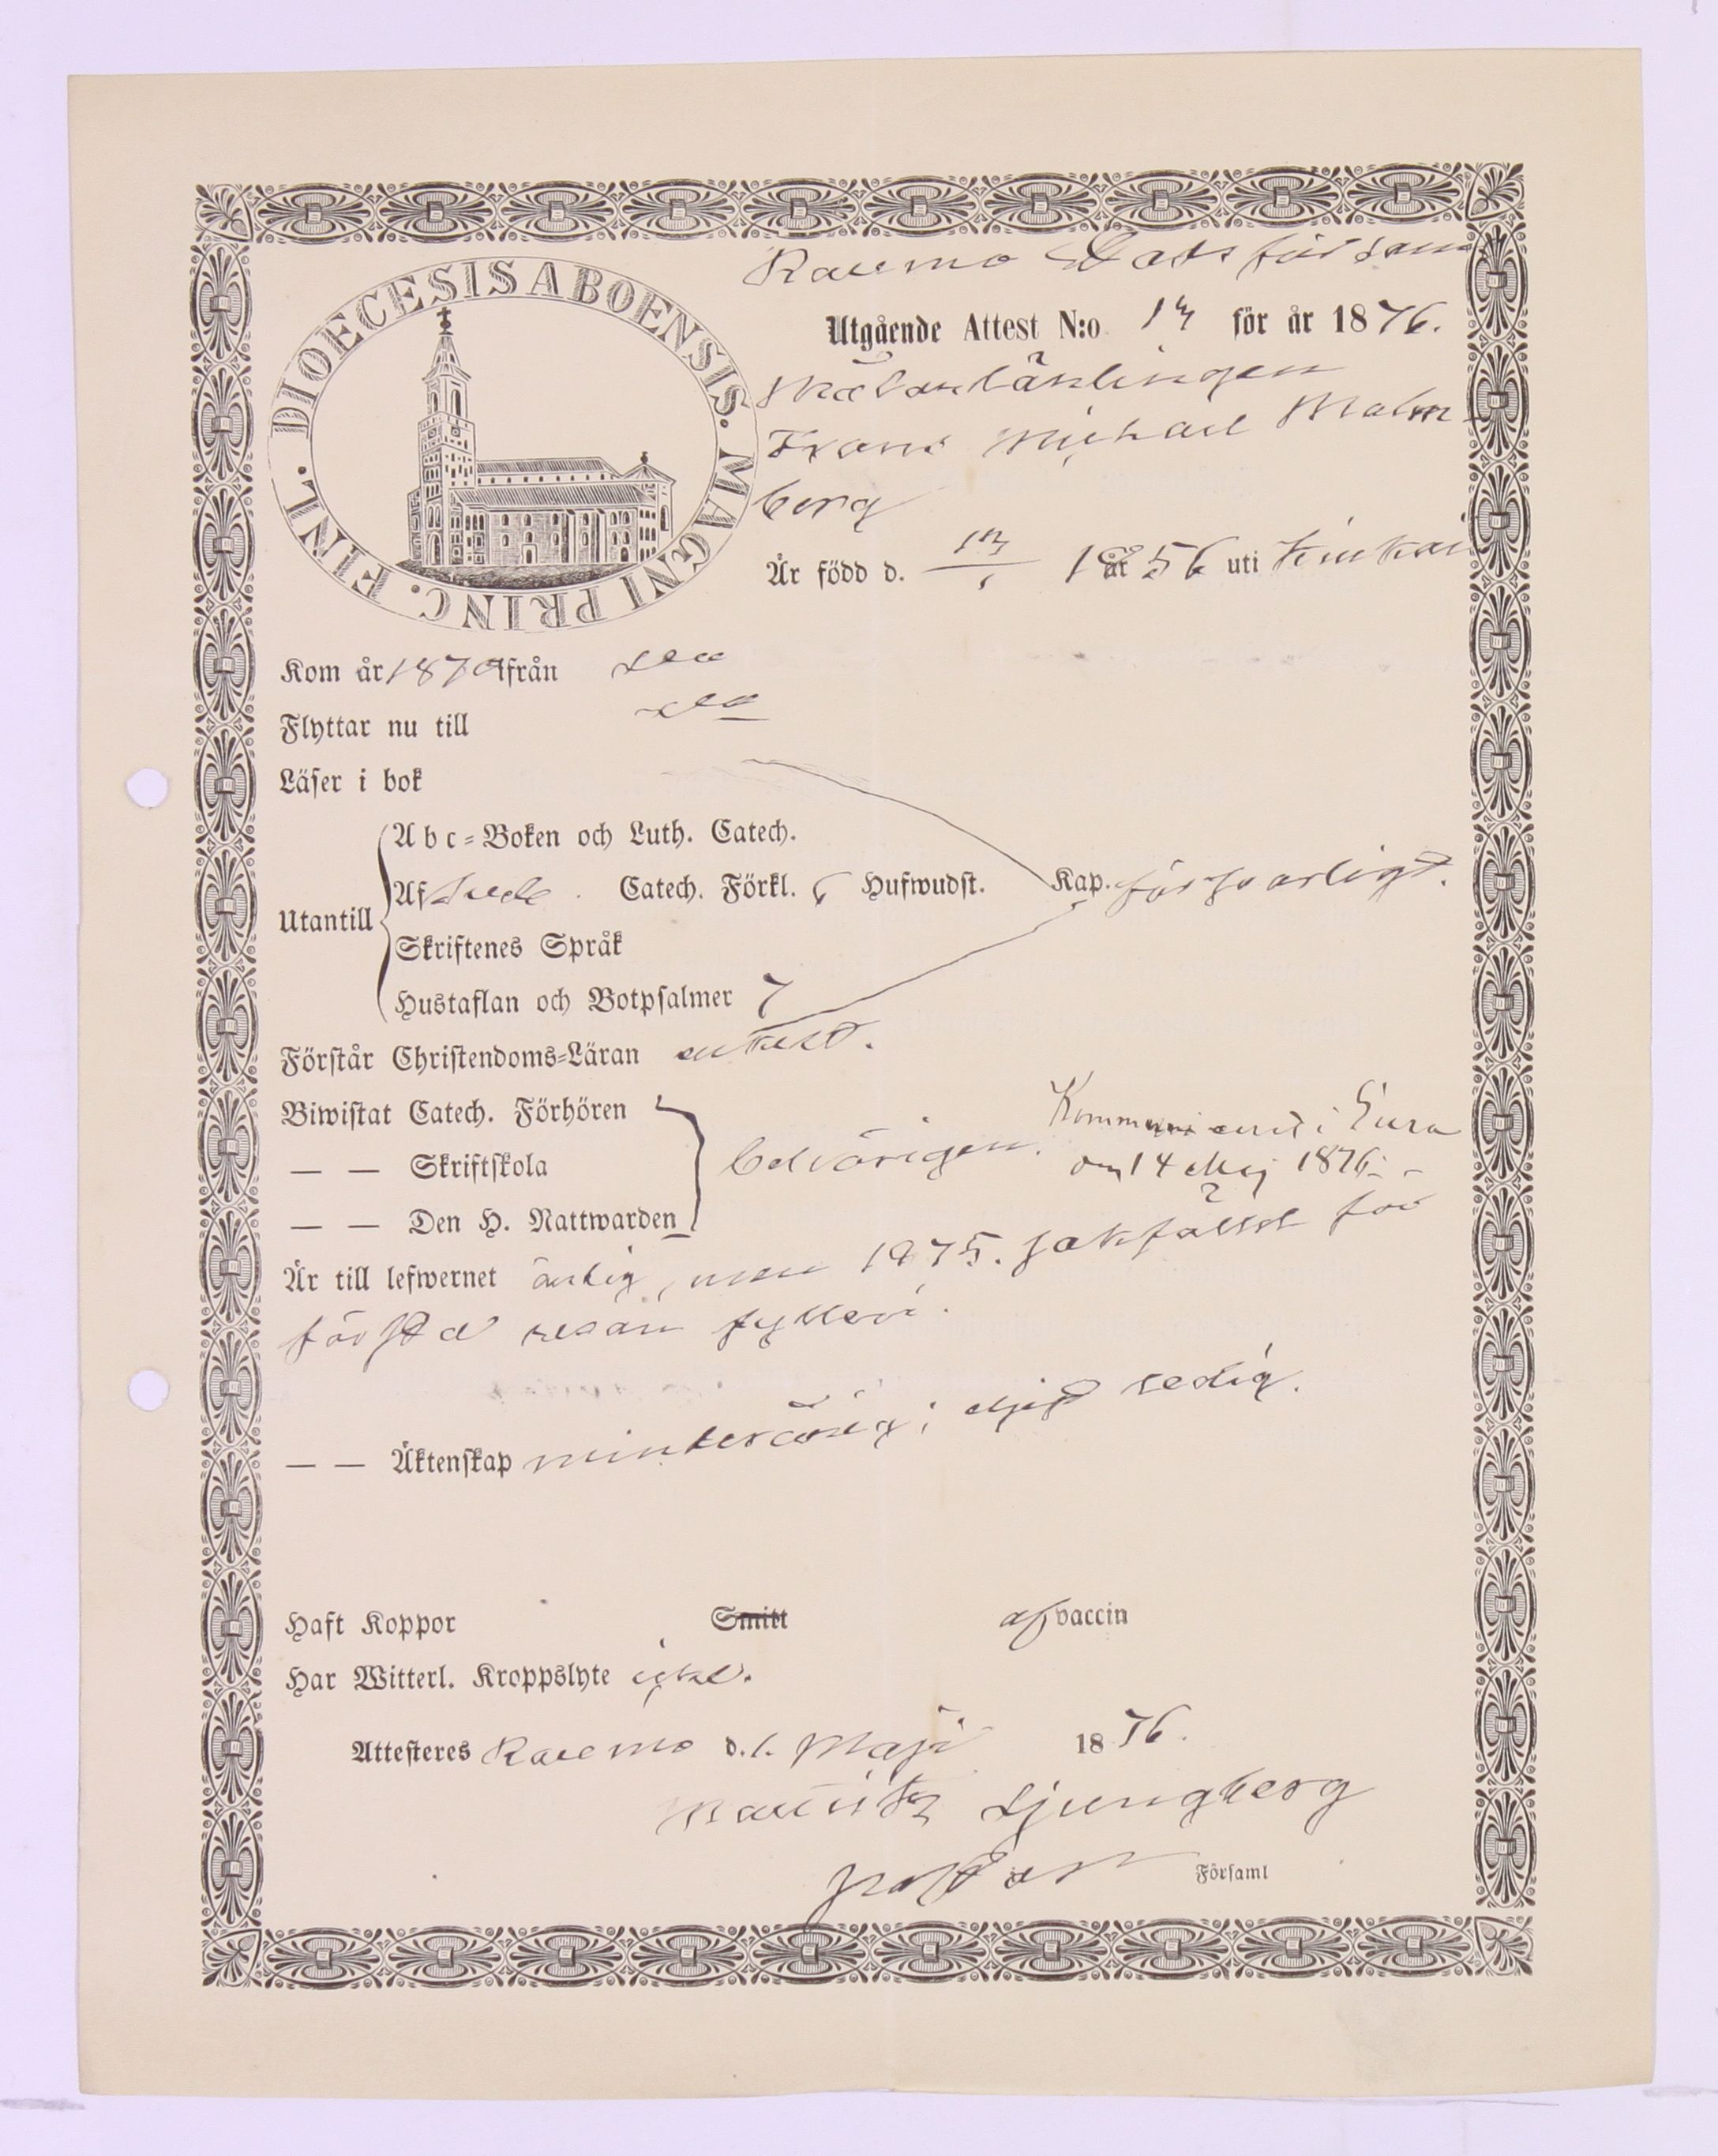 DIOECESIS ABOENSIS. MAGNI PRINC. FINL.
Raumo Stads församl
Utgående Attest N:o 13 för år 1876.
Målarlärlingen
Frans Michael Malm-
berg
Är född d. 13/1 år 1856 uti
Kom år 1870 ifrån
Flyttar nu till
Läser i bok
Utantill
Abc-Boken och Luth. Catech.
Af Catech. Förkl. 6 Hufwudst. Kap. försvarligt.
Skriftenes Språk
Hustaflan och Botpsalmer 7
Förstår Christendoms-Läran enkelt.
Biwistat Catech. Förhören
— — Skriftskola behörigen. Kommunicerat i Eura
den 14 Maj 1876
— — Den H. Nattwarden
Är till lefwernet ärlig, men 1875. sakfälld för
första resan fylleri.
— — Äktenskap minderårig; ledig.
Haft Koppor Smitt af vaccin
Har Witterl. Kroppslyte icke.
Attesteres Raumo d. 1. Maji 1876.
Mauritz Ljungberg
Pastor Församl